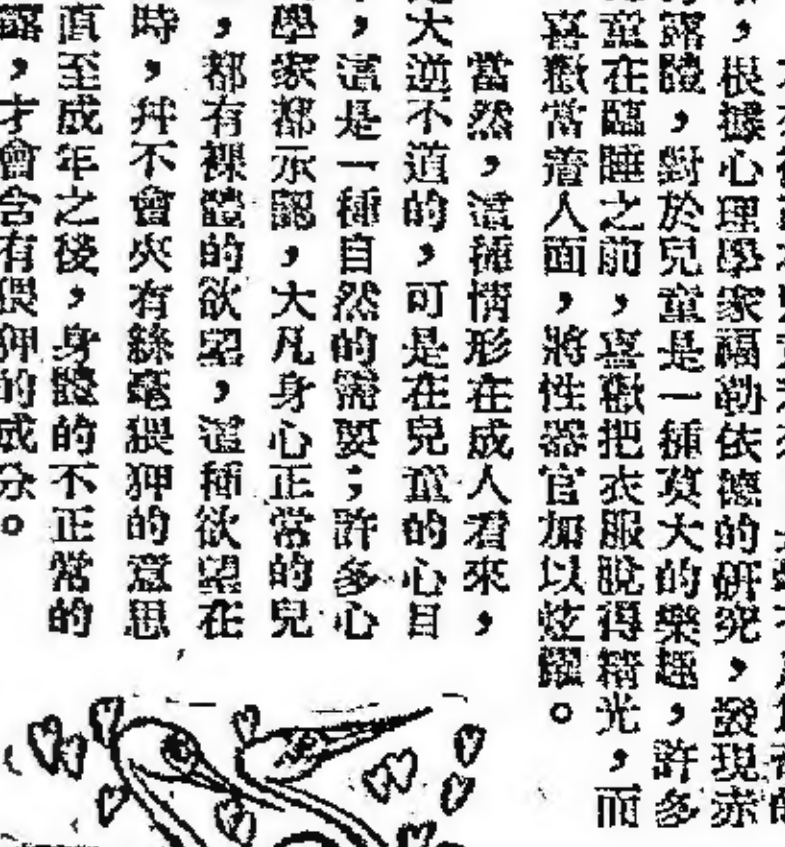 ，根據心理學家福勒依德的研究，發現赤
露體，對於兒童是一種莫大的樂趣，許多
童在臨睡之前，喜歡把衣服脫得精光，而
喜歡當着人面，將性器官加以炫耀。
當然，這種情形在成人看來，
大逆不道的，可是在兒童的心目
，這是一種自然的需要；許多心
學家都承認，大凡身心正常的兒
，都有裸體的欲望，這種欲望在
時，幷不會夾有絲毫猥狎的意思
直至成年之後，身體的不正常的
露，才會含有猥狎的成分。